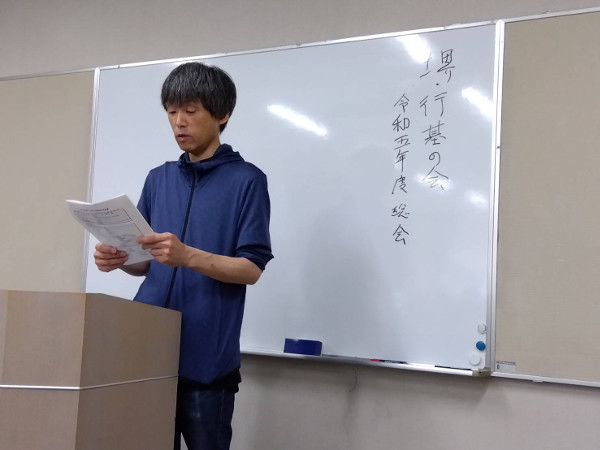 堺・行基の会
令和五年度総会